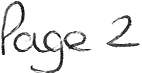 Page 2